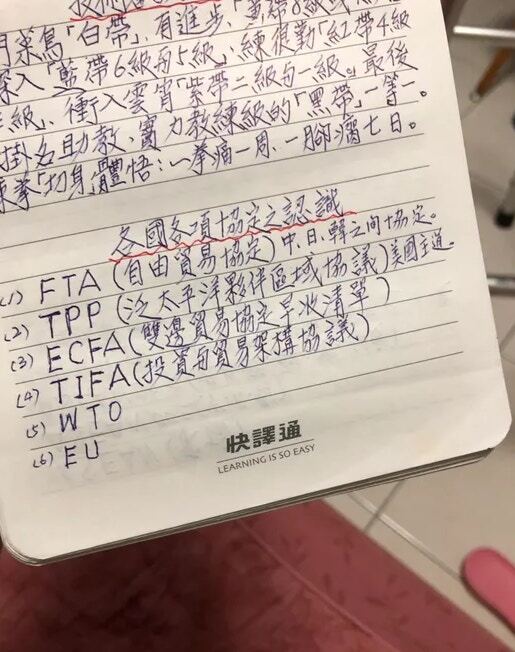 門菜鳥「白帶」,有進步,「黃帶8級
深入「藍帶6級与5級」;練很勤「紅帶4級
級」,衝入雲宵「紫帶二級与一級。最後
掛名助教,實力教練級的「黑帶」一等一。
練拳「切身」體悟:一拳痛一周、一腳瀉七日。
各國各項協定之認識
(1) FTA (自由貿易協定) 中、日、韓之间協定。
(2) TPP (泛太平洋夥伴區域協議) 美國主道。
(3) ECFA (雙邊貿易協定早收清單)
(4) TIFA (投資与貿易架構協議)
(5) WTO
(6) EU
快譯通
LEARNING IS SO EASY